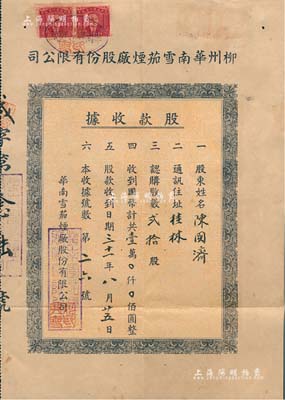 上海陽明拍賣
柳州華南雪茄煙廠股份有限公司
股款收據
一 股東姓名 陳國濟
二 通訊住址 桂林
三 認購股數 弍拾股
四 收到國幣計共壹萬0仟0佰圓整
五 股款收到日期三十一年八月廿五日
六 本收據號數 第二六號
華南雪茄煙廠股份有限公司
字第
號
上海陽明拍賣